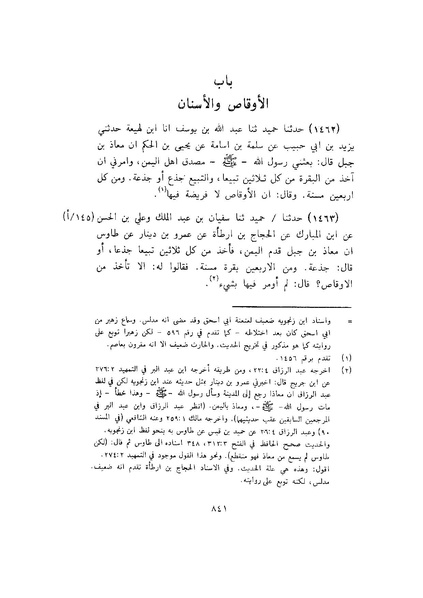 باب
الأوقاص والأسنان
(١٤٦٢) حدثنا حميد ثنا عبد الله بن يوسف انا ابن لهيعة حدثني
يزيد بن ابي حبيب عن سلمة بن اسامة عن يحيى بن الحكم ان معاذ بن
جبل قال: بعثني رسول الله – ﷺ – مصدق اهل اليمن، وامرني ان
آخذ من البقرة من كل ثلاثين تبيعا، والتبيع جذع أو جذعة. ومن كل
اربعين مسنة. وقال: ان الأوقاص لا فريضة فيها(١).
(١٤٦٣) حدثنا / حميد ثنا سفيان بن عبد الملك وعلي بن الحسن (١٤٥/أ)
عن ابن المبارك عن الحجاج بن ارطأة عن عمرو بن دينار عن طاوس
ان معاذ بن جبل قدم اليمن، فأخذ من كل ثلاثين تبيعا جذعا، أو
قال: جذعة. ومن الاربعين بقرة مسنة. فقالوا له: الا تأخذ من
الاوقاص؟ قال: لم اومر فيها بشيء(٢).
= واسناد ابن زنجويه ضعيف لعنعنة أبي اسحق وقد مضى انه مدلس. وسماع زهير من
ابي اسحق كان بعد اختلاطه – كما تقدم في رقم ٥٩٦ – لكن زهيرا توبع على
روايته كما هو مذكور في تخريج الحديث. والحارث ضعيف الا انه مقرون بعاصم.
(١) تقدم برقم ١٤٥٦.
(٢) اخرجه عبد الرزاق ٤: ٢٢، ومن طريقه أخرجه ابن عبد البر في التمهيد ٢: ٢٧٦
عن ابن جريج قال: اخبرني عمرو بن دينار بمثل حديثه عند ابن زنجويه لكن في لفظ
عبد الرزاق ان معاذا رجع إلى المدينة وسأل رسول الله – ﷺ – وهذا خطأ – إذ
مات رسول الله – ﷺ –، ومعاذ باليمن. (انظر عبد الرزاق وابن عبد البر في
المرجعين السابقين عقب حديثيهما). واخرجه مالك ١: ٢٥٩ وعنه الشافعي (في المسند
٩٠) وعبد الرزاق ٤: ٢٦ عن حميد بن قيس عن طاوس به بنحو لفظ ابن زنجويه.
والحديث صحح الحافظ في الفتح ٣: ٣١٢، ٣٤٨ اسناده الى طاوس ثم قال: (لكن
طاوس لم يسمع من معاذ فهو منقطع). ونحو هذا القول موجود في التمهيد ٢: ٢٧٤.
اقول: وهذه هي علة الحديث. وفي الاسناد الحجاج بن ارطأة تقدم انه ضعيف.
مدلس، لكنه توبع على روايته.
٨٤١